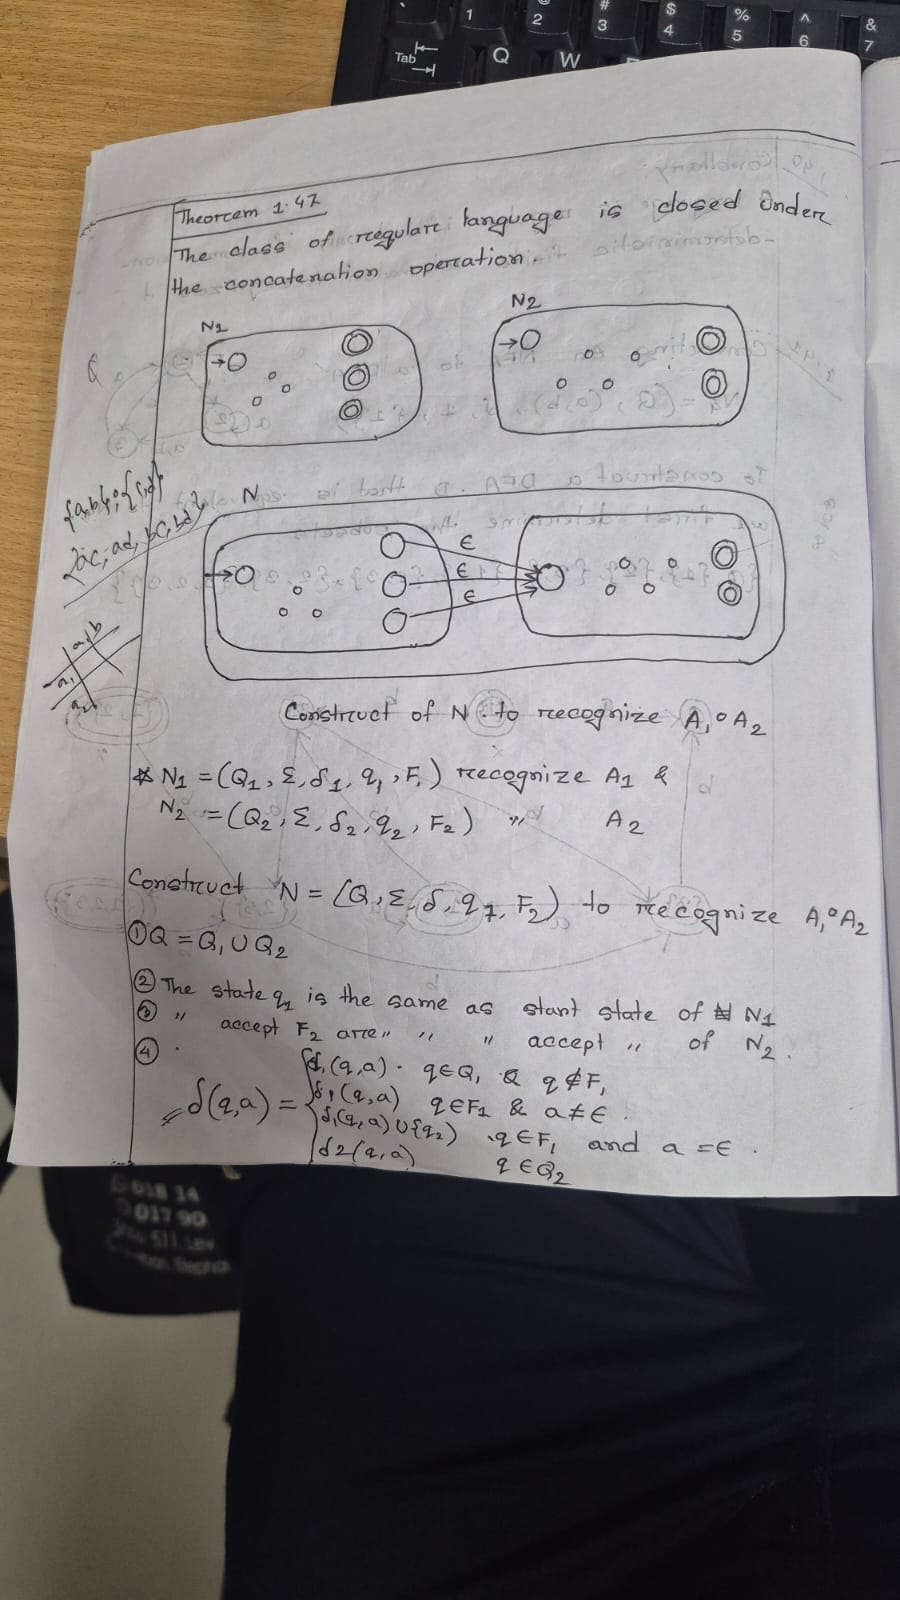 Tab
1
2
#
3
$
4
%
5
^
6
&
7
Q
W
Theorem 1.47
The class of regular language is closed under
the concatenation operation.
N1
N2
{a,b}o{c,d}
{ac, ad, bc, bd}
N
ε
ε
ε
a,b
q1
q2
Construct of N to recognize A1 o A2
* N1 = (Q1, Σ, δ1, q1, F1) recognize A1 &
N2 = (Q2, Σ, δ2, q2, F2) " A2
Construct N = (Q, Σ, δ, q1, F2) to recognize A1 o A2
① Q = Q1 U Q2
② The state q1 is the same as start state of N1
③ " accept F2 are " " " accept " of N2.
④ .
δ(q,a) = { δ1(q,a) . q∈Q1 & q∉F1
δ1(q,a) q∈F1 & a≠ε .
δ1(q,a) U {q2} . q∈F1 and a = ε .
δ2(q,a) q∈Q2
018 14
017 90